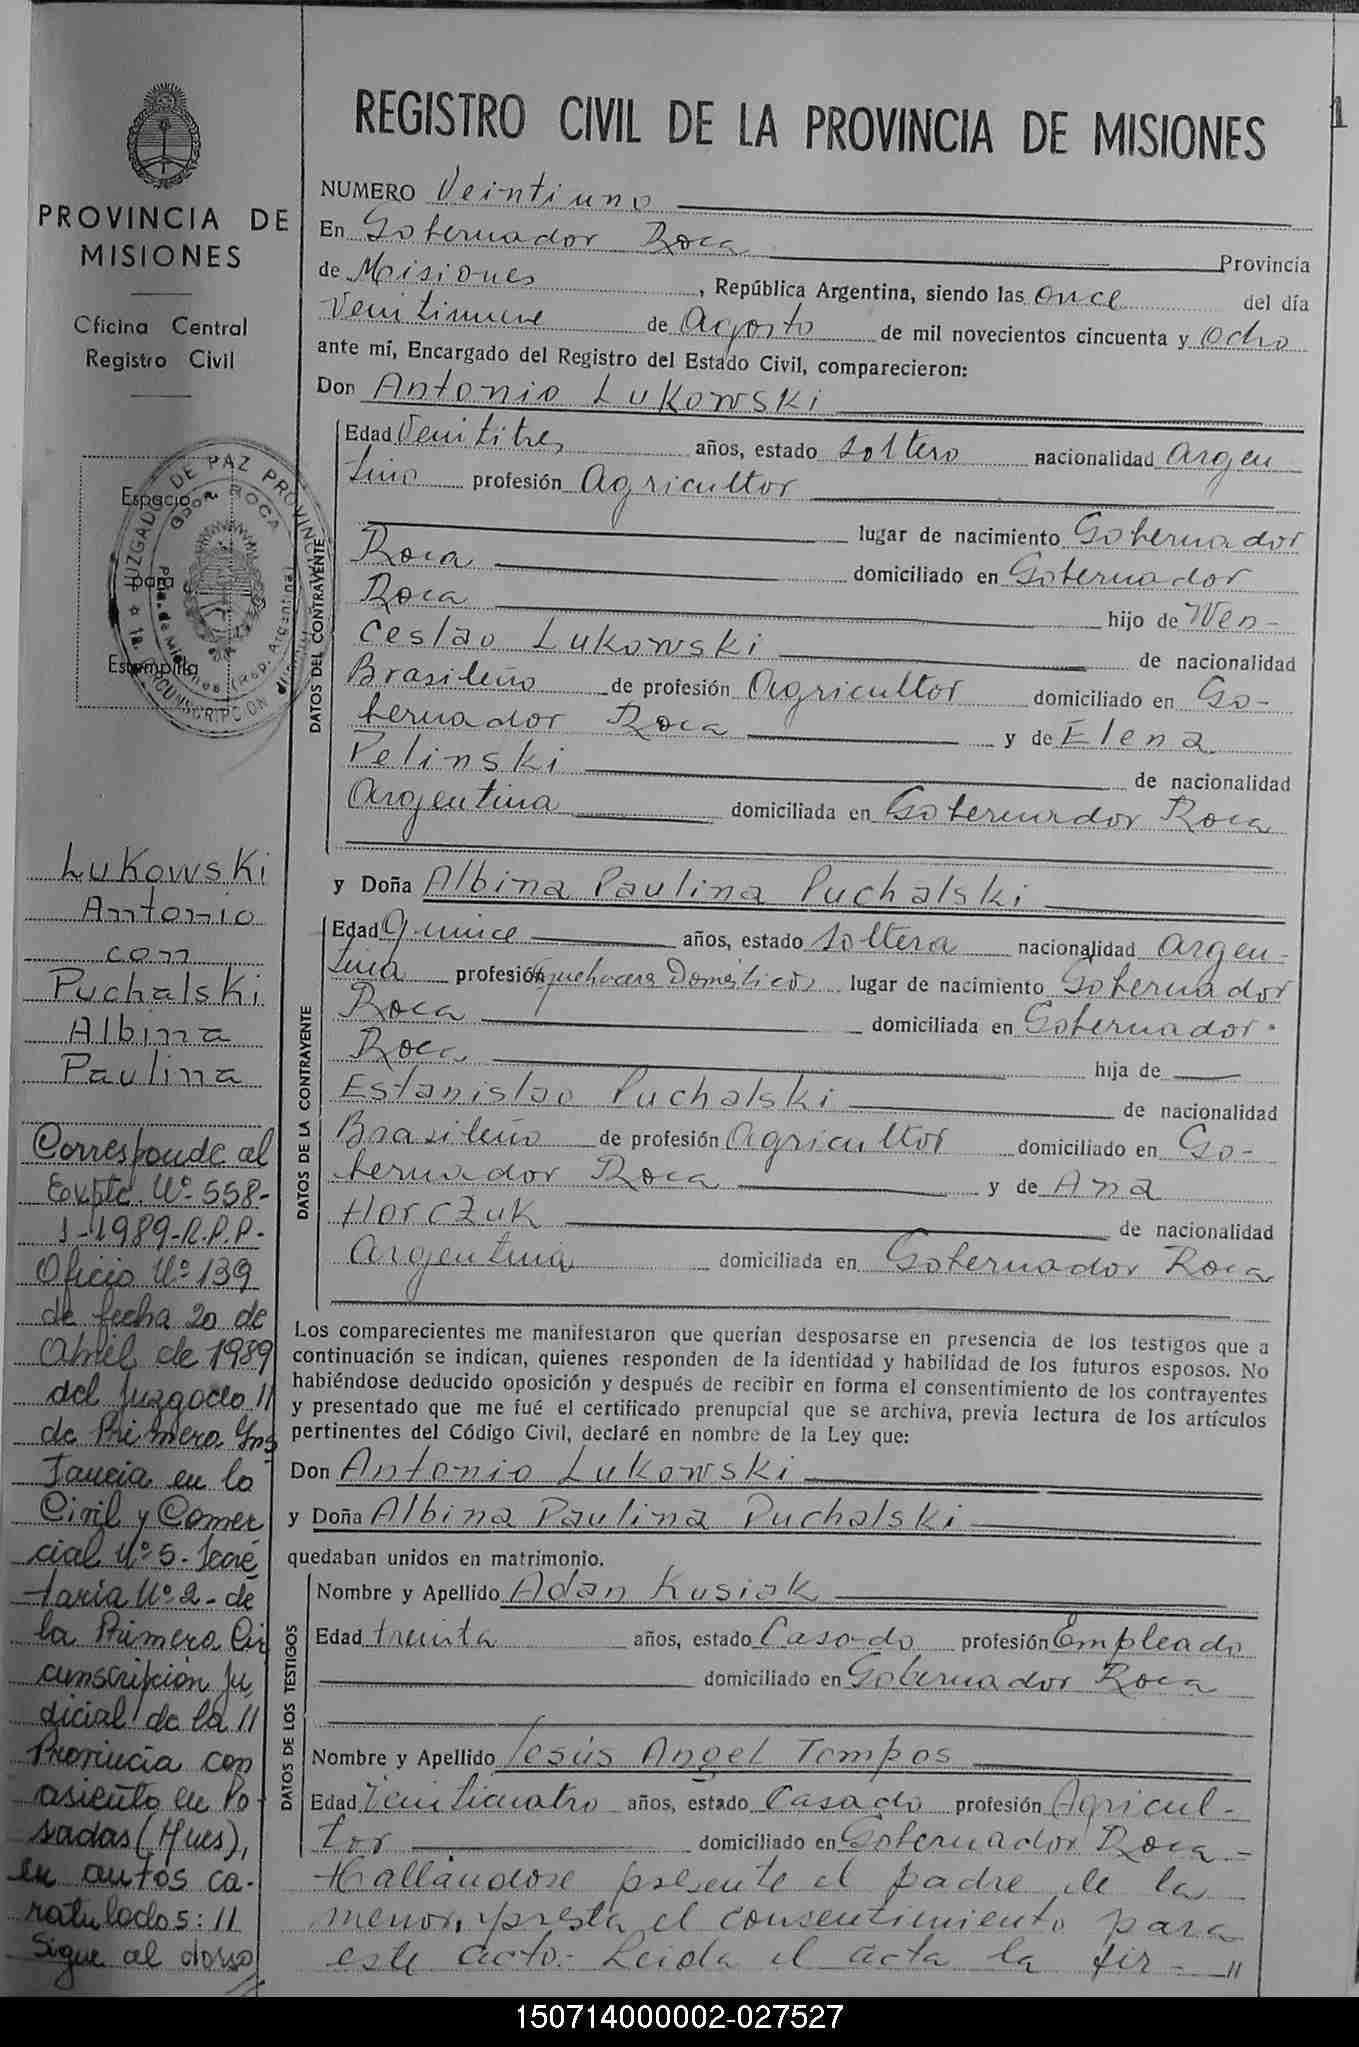 PROVINCIA DE
MISIONES
Oficina Central
Registro Civil
JUZGADO DE PAZ PROVINCIAL
Gdor. ROCA
Pcia. de Misiones (Rep. Argentina)
1a. CIRCUNSCRIPCION
Espacio
para
Estampilla
Lukowski
Antonio
con
Puchalski
Albina
Paulina
Corresponde al
Expte. Nº 558-
J-1989-R.P.P.-
Oficio Nº 139
de fecha 20 de
Abril de 1989
del Juzgado //
de Primera Ins
tancia en lo
Civil y Comer
cial Nº 5- Secre
taría Nº 2- de
la Primera Cir
cunscripción Ju
dicial de la //
Provincia con
asiento en Po-
sadas (Mnes),
en autos ca-
ratulados: //
Sigue al dorso
//
1
REGISTRO CIVIL DE LA PROVINCIA DE MISIONES
NUMERO Veintiuno
En Gobernador Roca Provincia
de Misiones, República Argentina, siendo las once del día
Veintinueve de Agosto de mil novecientos cincuenta y Ocho
ante mí, Encargado del Registro del Estado Civil, comparecieron:
Don Antonio Lukowski
DATOS DEL CONTRAYENTE
Edad Veintitres años, estado soltero nacionalidad argen
tino profesión Agricultor
lugar de nacimiento Gobernador
Roca domiciliado en Gobernador
Roca hijo de Wen-
ceslao Lukowski de nacionalidad
Brasileño de profesión Agricultor domiciliado en Go-
bernador Roca y de Elena
Pelinski de nacionalidad
Argentina domiciliada en Gobernador Roca
y Doña Albina Paulina Puchalski
DATOS DE LA CONTRAYENTE
Edad Quince años, estado soltera nacionalidad argen-
tina profesión quehaceres Domésticos lugar de nacimiento Gobernador
Roca domiciliada en Gobernador
Roca hija de
Estanislao Puchalski de nacionalidad
Brasileño de profesión Agricultor domiciliado en Go-
bernador Roca y de Ana
Horczuk de nacionalidad
Argentina domiciliada en Gobernador Roca
Los comparecientes me manifestaron que querían desposarse en presencia de los testigos que a
continuación se indican, quienes responden de la identidad y habilidad de los futuros esposos. No
habiéndose deducido oposición y después de recibir en forma el consentimiento de los contrayentes
y presentado que me fué el certificado prenupcial que se archiva, previa lectura de los artículos
pertinentes del Código Civil, declaré en nombre de la Ley que:
Don Antonio Lukowski
y Doña Albina Paulina Puchalski
quedaban unidos en matrimonio.
DATOS DE LOS TESTIGOS
Nombre y Apellido Adan Kusiak
Edad treinta años, estado Casado profesión Empleado
domiciliado en Gobernador Roca
Nombre y Apellido Jesús Angel Tempos
Edad Veinticuatro años, estado Casado profesión Agricul-
tor domiciliado en Gobernador Roca-
Hallándose presente el padre de la
menor, y presta el consentimiento para
este acto.- Leida el acta la fir-//
150714000002-027527